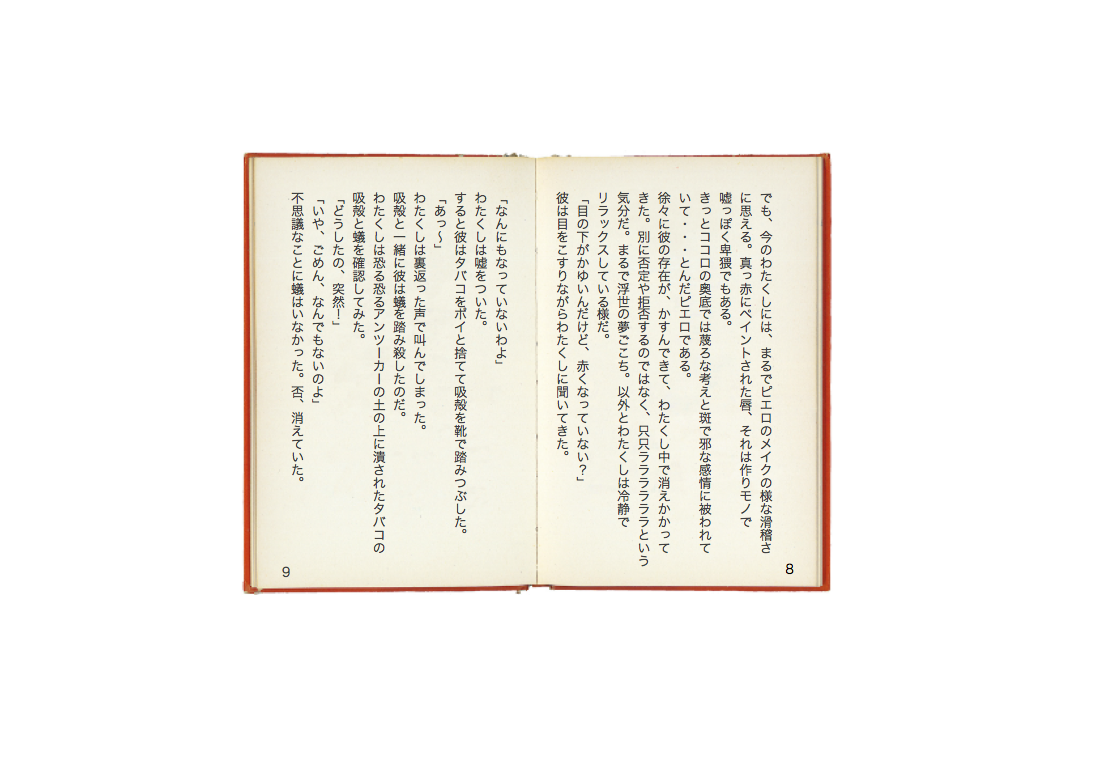 でも、今のわたくしには、まるでピエロのメイクの様な滑稽さ
に思える。真っ赤にペイントされた唇、それは作りモノで
嘘っぽく卑猥でもある。
きっとココロの奥底では蔑ろな考えと斑で邪な感情に被われて
いて・・・とんだピエロである。
徐々に彼の存在が、かすんできて、わたくし中で消えかかって
きた。別に否定や拒否するのではなく、只只ラララララララという
気分だ。まるで浮世の夢ごこち。以外とわたくしは冷静で
リラックスしている様だ。
「目の下がかゆいんだけど、赤くなっていない？」
彼は目をこすりながらわたくしに聞いてきた。
8
「なんにもなっていないわよ」
わたくしは嘘をついた。
すると彼はタバコをポイと捨てて吸殻を靴で踏みつぶした。
「あっ〜」
わたくしは裏返った声で叫んでしまった。
吸殻と一緒に彼は蟻を踏み殺したのだ。
わたくしは恐る恐るアンツーカーの土の上に潰されたタバコの
吸殻と蟻を確認してみた。
「どうしたの、突然！」
「いや、ごめん、なんでもないのよ」
不思議なことに蟻はいなかった。否、消えていた。
9